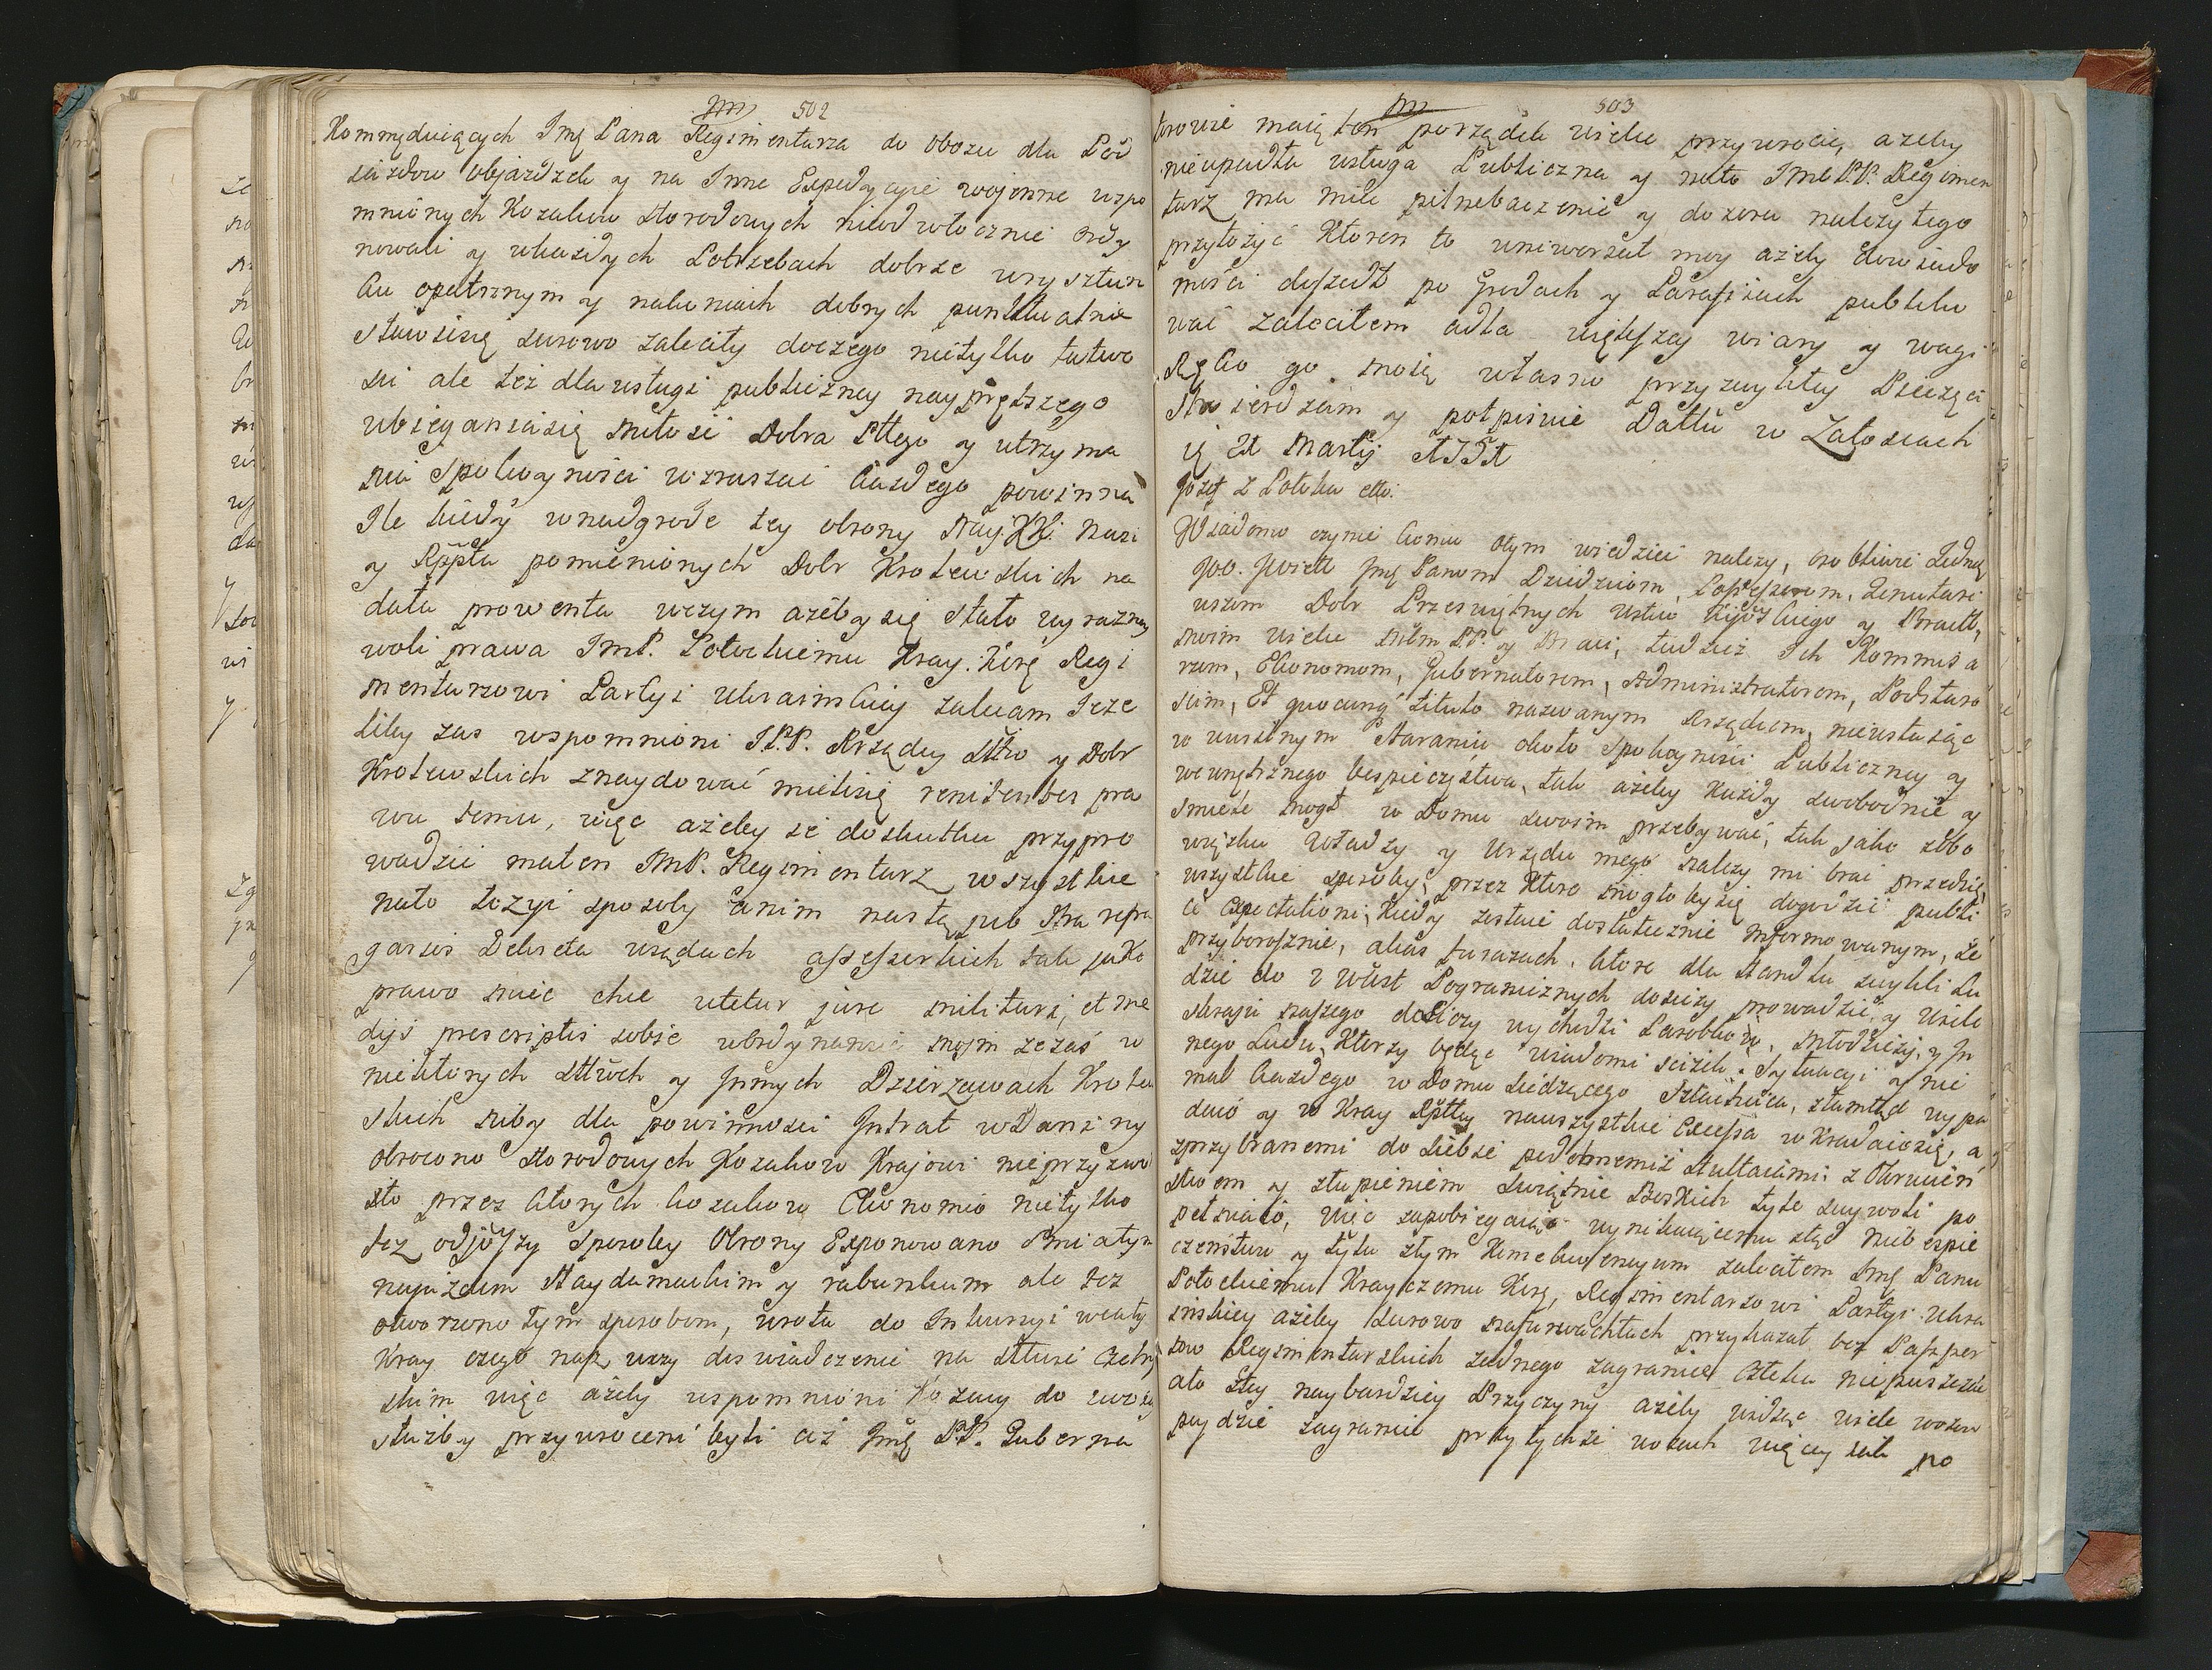 502
Kommędui̯ących Jmę Pana Regimentarza do obozu dla Pod
iazdow objazdzek y na Inne Expedycyie wojenne wspo
mnionych Kozakow Horodowych nieodwłocznie ordy
nowali y wkazdych Potrzebach dobrze wrysztun
ku opatrznym y nakoniach dobrych punktualnie
stawićsię surowo zalecity doczego nietylko tatwo
sci ale też dla usługi publiczney nayprętszego
ubieganiasię miłość Dobra Pttego y utrzyma
nia Spokoyności wzruszać każdego powinna
Ile kiedy wnadgrodę tey obrony Nayj. KKi. Nasi
y Rzpta pomienionych Dobr Krolewskich na
data prowenta wczym ażeby się stało wyrazney
woli prawa JmP. Potockiemu Kray. Kor. Regi
mentarzowi Partyi Ukrainskiey zalecam Jeze
liby zas wspomnioni J.P.P. Rządcy sttw y Dobr
Krolewskich znaydować mielisię renitentes pra
wu temu, więc ażeby ie doskutku przypro
wadzić maten JmP. Regimentarz wszystkie
nato łożyć sposoby anim nastąpio
gariis Dekreta wsądach assessorkich tak jako
prawo mieć chce utetur jure militari, et me
dijs prescriptis sobie ubrdynansie mojm zezaś w
niektorych sttwch y Jnnych Dzierzawach Krolew
skich niby dla powinnosci Jntrat wDaniny
obrocono Horodowych Kozakow Krajowi nieprzyzwo
ito przez ktorych kozakow Ekonomio nietylko
tez odjowszy Sposoby Obrony Exponowano Smiałym
najazdem Haydamackim y rabunkom ale tez
otworzono tym sposobem, wrota do Inkursyi wcały
Kray czego naprzy doswiadczenie na Sttwie Czehry
skim więc ażeby wspomnioni Kozacy do swoiey
służby przywroceni byli cż Jmę P.P. Guberna
503
torowie maią ten porządek wielce przywrocić, ażeby
nieupadła usługa Publiczna y nato JmP.P. Regimen
tarz ma mieć pilnebaczenie y dozoru nalezytego
przyłożyć Ktoren to uniwersał moy ażeby dowiado
mości doszedł po Grodach y Parafiiach publiko
wać zaleciłem adla większey wiary y wagi
Ręko go moią własno przyzwykłey Pieczęci
Stwierdzam y potpisuie Dattu w Załoscach
Jozef z Potoka etto.
Wiadomo czynie komu otym wiedzieć nalezy, osobliwie Jednę
joo. Jwiett Jmę Panom Dziedzicom, Possessorom, Zenutari
uszom Dobr Przeswiętnych Wstw Kijowskiego y Bractt,
moim wielce Mttm P.P. y Braci, tudzież Ich Kommisa
rzom, Ekonomom, Gubernatorom, Administratorom, Podstaro
sciem, Et quocunq titulo nazwanym Rządcom, nieustaiąc
w uusilnym Staraniu około Spokoyności Publiczney y
wewnętrznego bespieczęstwa, tak ażeby Kuzdy swobodnie y
smiele mogł w Domu swoim przebywać, tak jako zobo
wiązku Władzy y Urzędu mego nalezy mi brać przedsię
wszystkie sposoby, przez ktore mogło bysię dogodzić publi
ce expectationi; Kiedy zostaie dostatecznie informowanym, że
przyborosznie, alias turazach. ktore dla Handlu zwykli Lu
dzie do z Wust Pogranicznych dosiczy prowadzić, y Wiele
Kraju naszego doSiczy wychodzi Parobkow, Młodzieży, y In
nego Ludu, Ktorzy będąc wiadomi sciżek. Sytuacyi y nie
mal każdego w Domu siedzącego Szlachcica, ztamtąd wypa
daio y w Kray Rptty nauszystkie Excessa wkradaiosię, a
zprzybranemi do Siebie podobnemiż Hultaiami: z Okrucień
stwem y złupieniem Swiątnic Boskich tyle swywoli po
pełniaio, Więc zapobiegaiąc wynikaiącemu ztąd niebespie
czeństwu y tytu złym zaleciłem Jmę Panu
Potockiemu Krayczemu Korę, Regimentarzowi Partyi Ukra
ińskiey ażeby surowo naforwachtach przykazał bez Paszper
tow Regimentarskich żadnego zagranicę człeka nie puszczać
ato stey naybardziey Przyczyny ażeby widząc wiele wozow
puydzie zagranice przytychże wozach więcey iak po